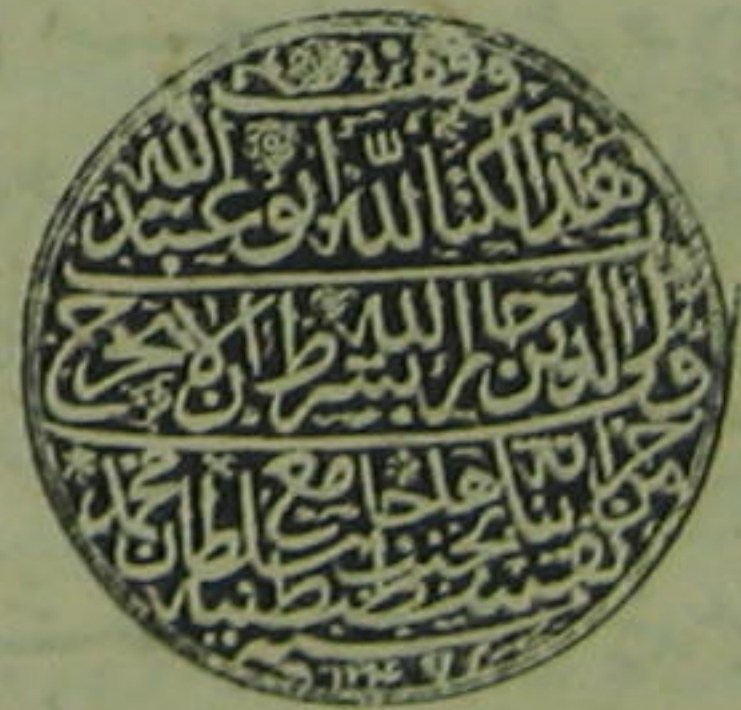 وقف
هذا الكتاب لله ابو عبد الله
ولى الدين جار الله بشرط ان لا يخرج
من خزانة بناها بجنب جامع سلطان محمد
بقسطنطينية